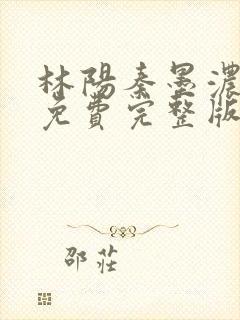 林陽秦墨濃
免費完整版
邵莊